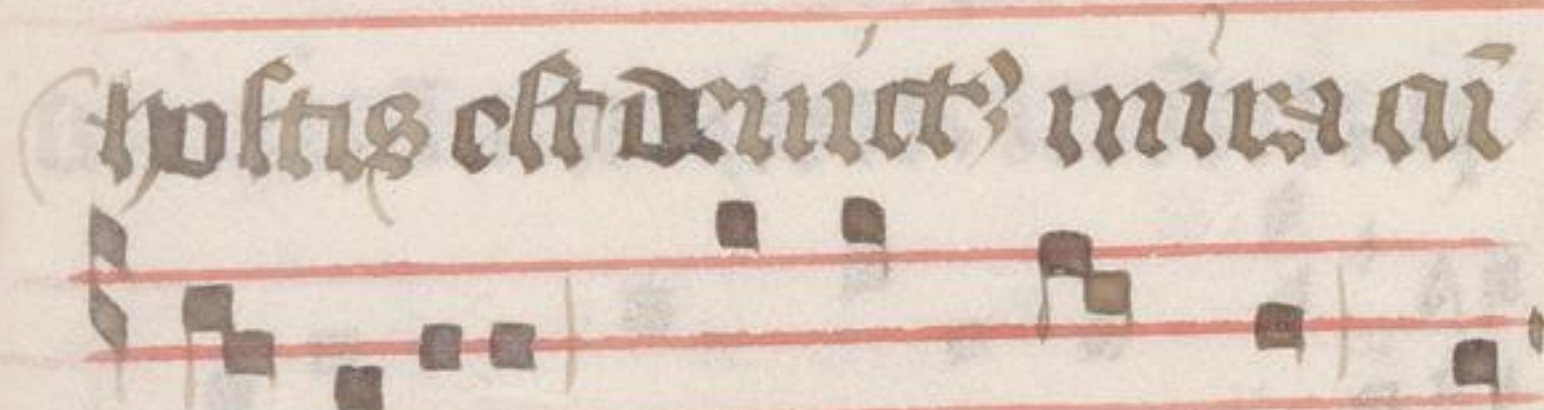 hostis est deuictꝰ mira aī